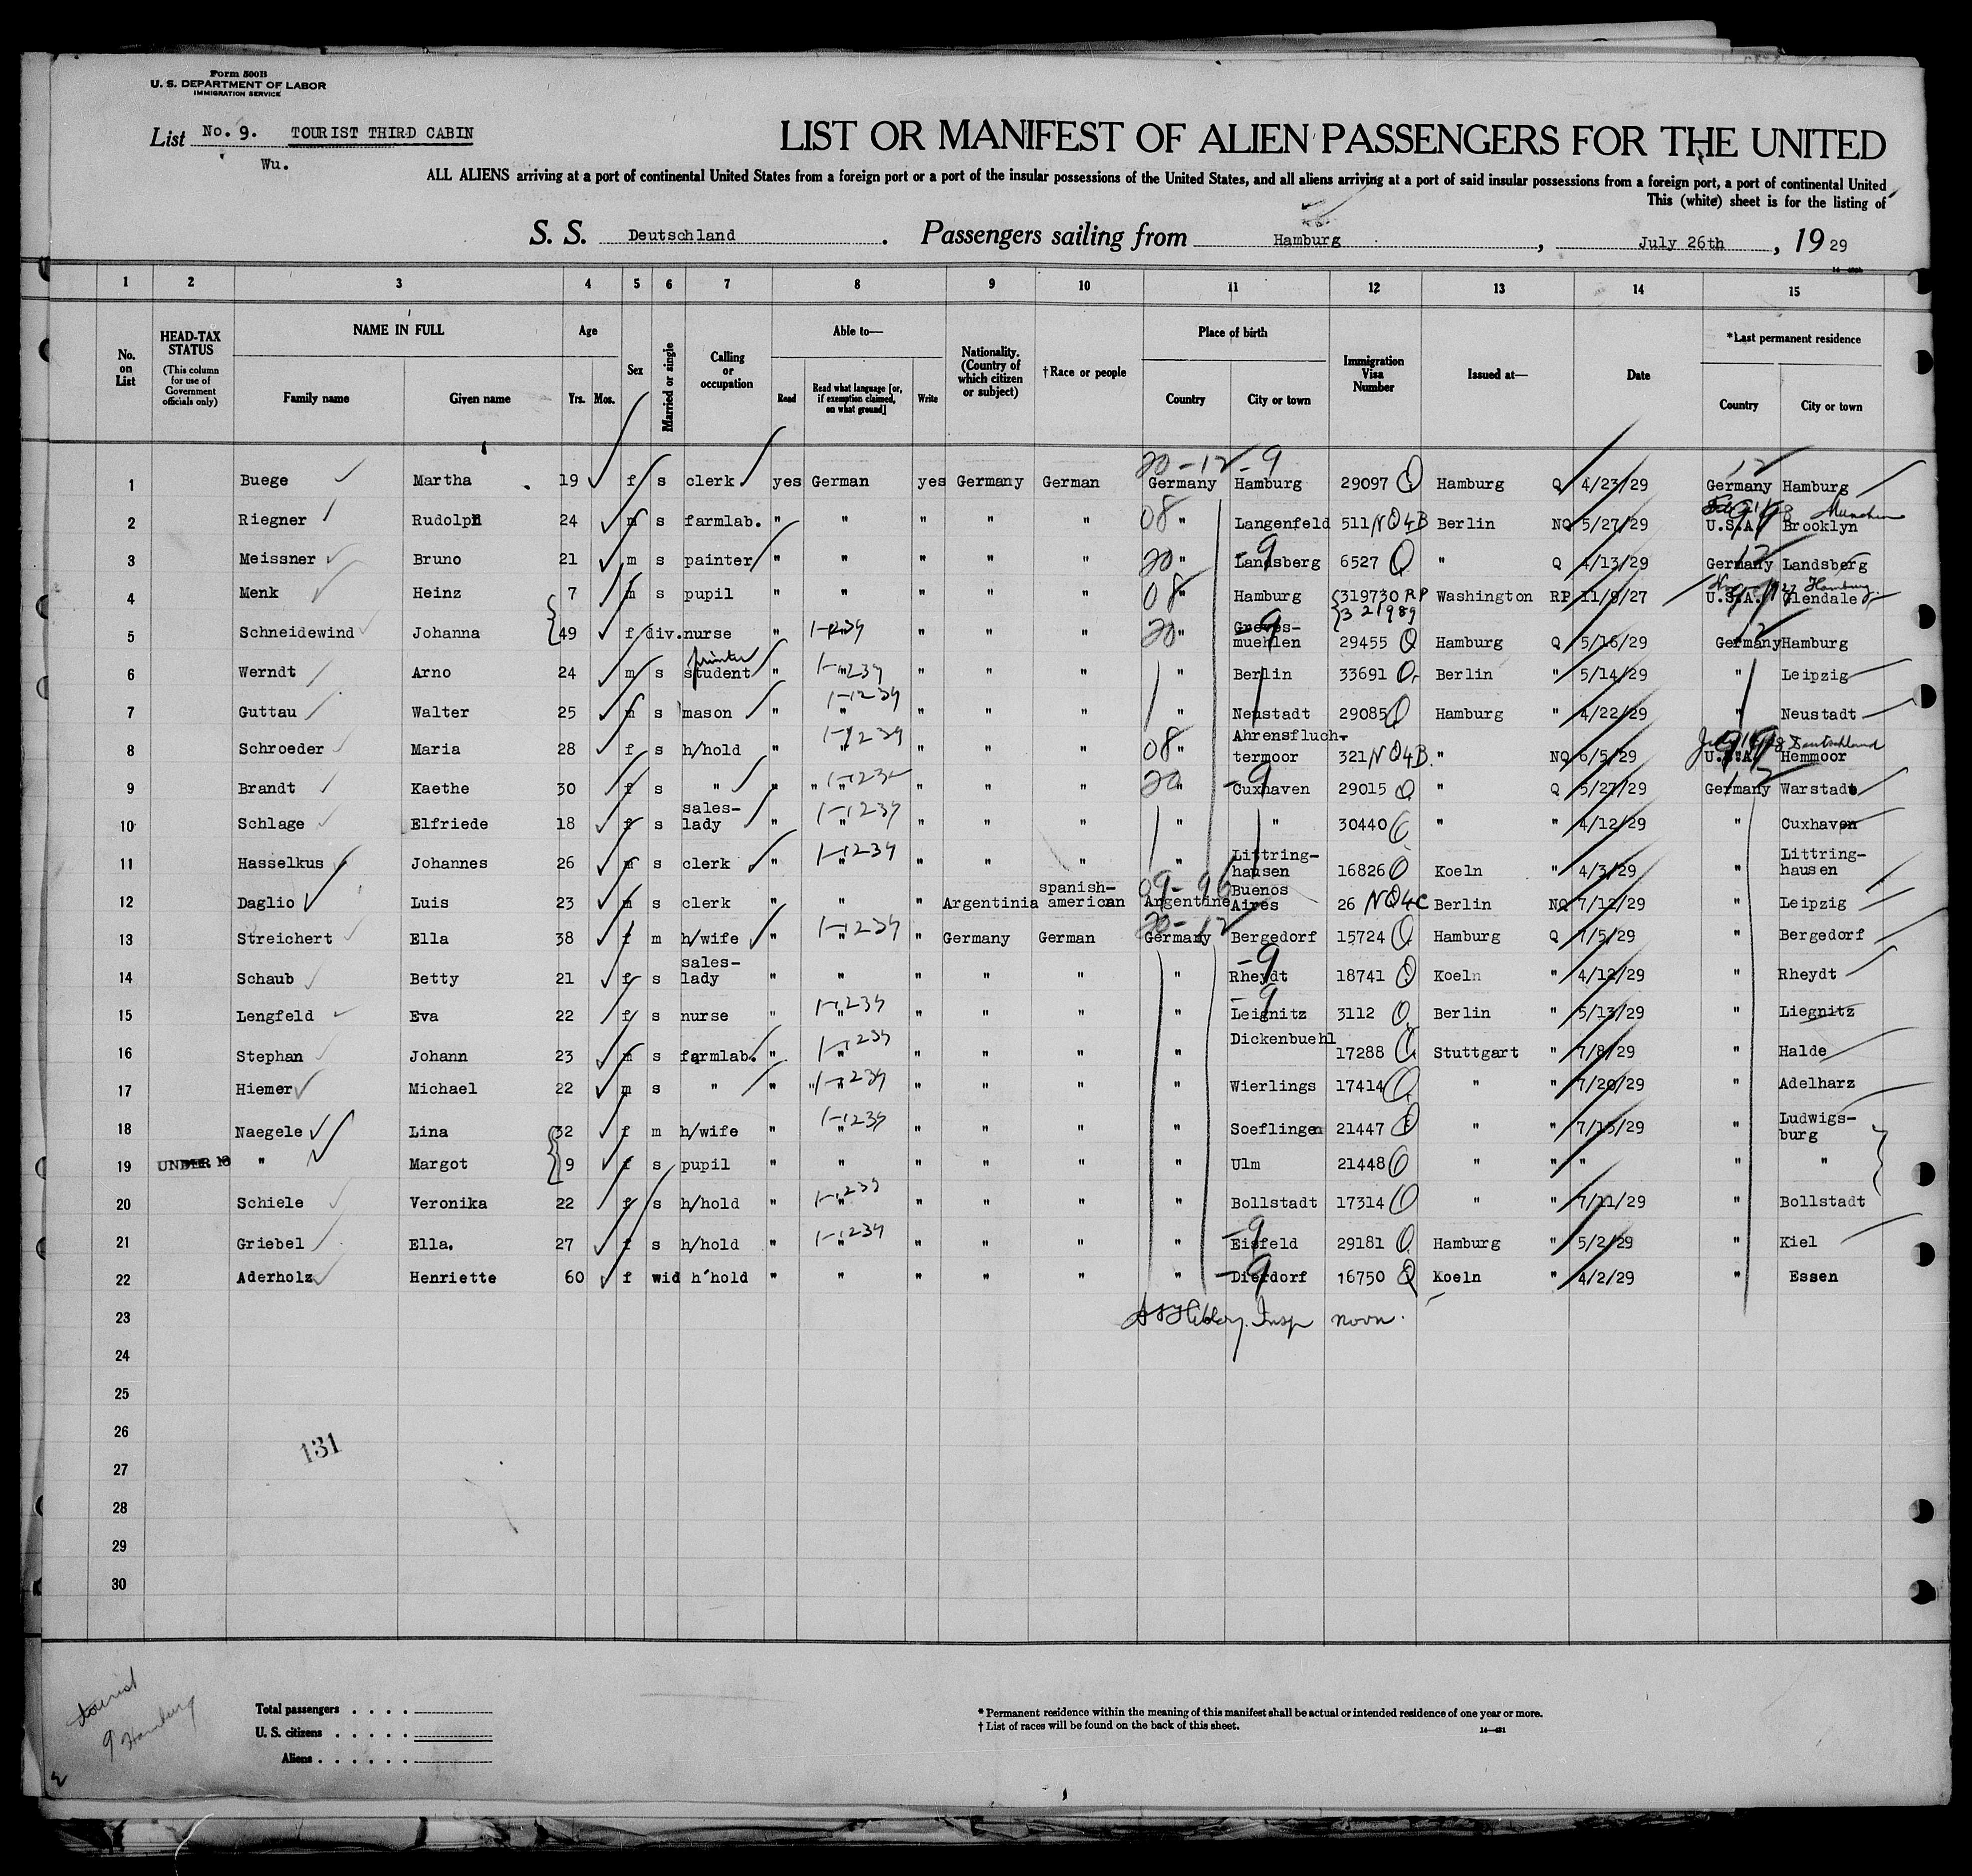 Form 500B
U. S. DEPARTMENT OF LABOR
IMMIGRATION SERVICE
List No. 9. TOURIST THIRD CABIN
Wu.
LIST OR MANIFEST OF ALIEN PASSENGERS FOR THE UNITED
ALL ALIENS arriving at a port of continental United States from a foreign port or a port of the insular possessions of the United States, and all aliens arriving at a port of said insular possessions from a foreign port, a port of continental United
This (white) sheet is for the listing of
S. S. Deutschland. Passengers sailing from Hamburg, July 26th, 19 29
1 2 3 4 5 6 7 8 9 10 11 12 13 14 15
No. on List HEAD-TAX STATUS (This column for use of Government officials only) NAME IN FULL Family name Given name Age Yrs. Mos. Sex Married or single Calling or occupation Able to— Read Read what language [or, if exemption claimed, on what ground] Write Nationality. (Country of which citizen or subject) †Race or people Place of birth Country City or town Immigration Visa Number Issued at— Date *Last permanent residence Country City or town
20-12-9 12
1 Buege Martha 19 f s clerk yes German yes Germany German Germany Hamburg 29097 Q Hamburg Q 4/23/29 Germany Hamburg
2 Riegner Rudolph 24 m s farmlab. " " " " " 08 " Langenfeld 511 NQ4B Berlin NQ 5/27/29 U.S.A. Brooklyn München
3 Meissner Bruno 21 m s painter " " " " " 20 " -9 Landsberg 6527 Q " Q 4/13/29 Germany 12 Landsberg
4 Menk Heinz 7 m s pupil " " " " " 08 " Hamburg 319730 RP 321989 Washington RP 11/9/27 U.S.A. Glendale Hamburg
5 Schneidewind Johanna 49 f div. nurse " 1-1239 " " " 20 " Greves-muehlen -9 29455 Q Hamburg Q 5/16/29 Germany 12 Hamburg
6 Werndt Arno 24 m s student printer " 1-1239 " " " " Berlin 33691 Q Berlin " 5/14/29 " Leipzig
7 Guttau Walter 25 m s mason " 1-1239 " " " " " Neustadt 29085 Q Hamburg " 4/22/29 " Neustadt
8 Schroeder Maria 28 f s h/hold " 1-1239 " " " " 08 " Ahrensfluch-termoor 321 NQ4B. " NQ 6/5/29 U.S.A. Deutschland Hemmoor
9 Brandt Kaethe 30 f s " " " 1-1239 " " " 20 " -9 Cuxhaven 29015 Q " Q 5/27/29 Germany 12 Warstade
10 Schlage Elfriede 18 f s sales-lady " 1-1239 " " " " " " 30440 Q " " 4/12/29 " Cuxhaven
11 Hasselkus Johannes 26 m s clerk " 1-1239 " " " " " Littring-hausen 16826 Q Koeln " 4/3/29 " Littring-hausen
12 Daglio Luis 23 m s clerk " " " Argentinia spanish-american 09-96 Argentine Buenos Aires 26 NQ4C Berlin NQ 7/12/29 " Leipzig
13 Streichert Ella 38 f m h/wife " 1-1239 " " Germany German 20-12 Germany Bergedorf 15724 Q Hamburg Q 7/5/29 " Bergedorf
14 Schaub Betty 21 f s sales-lady " " " " " " -9 Rheydt 18741 Q Koeln " 4/12/29 " Rheydt
15 Lengfeld Eva 22 f s nurse " 1-1239 " " " " " -9 Leignitz 3112 Q Berlin " 5/13/29 " Liegnitz
16 Stephan Johann 23 m s farmlab. " 1-1239 " " " " " Dickenbuehl 17288 Q Stuttgart " 7/8/29 " Halde
17 Hiemer Michael 22 m s " " " 1-1239 " " " " Wierlings 17414 Q " " 7/20/29 " Adelharz
18 Naegele Lina 32 f m h/wife " 1-1239 " " " " " Soeflingen 21447 Q " " 7/15/29 " Ludwigs-burg
19 UNDER 16 " Margot 9 f s pupil " " " " " " Ulm 21448 Q " " " " "
20 Schiele Veronika 22 f s h/hold " 1-1239 " " " " " Bollstadt 17314 Q " " 7/11/29 " Bollstadt
21 Griebel Ella. 27 f s h/hold " 1-1239 " " " " " -9 Eisfeld 29181 Q Hamburg " 5/2/29 " Kiel
22 Aderholz Henriette 60 f wid h'hold " " " " " " -9 Dierdorf 16750 Q Koeln " 4/2/29 " Essen
23 Insp noon.
24
25
26
131
27
28
29
30
tourist
9 Hamburg
Total passengers . . . .
U. S. citizens . . . . .
Aliens . . . . . .
* Permanent residence within the meaning of this manifest shall be actual or intended residence of one year or more.
† List of races will be found on the back of this sheet.